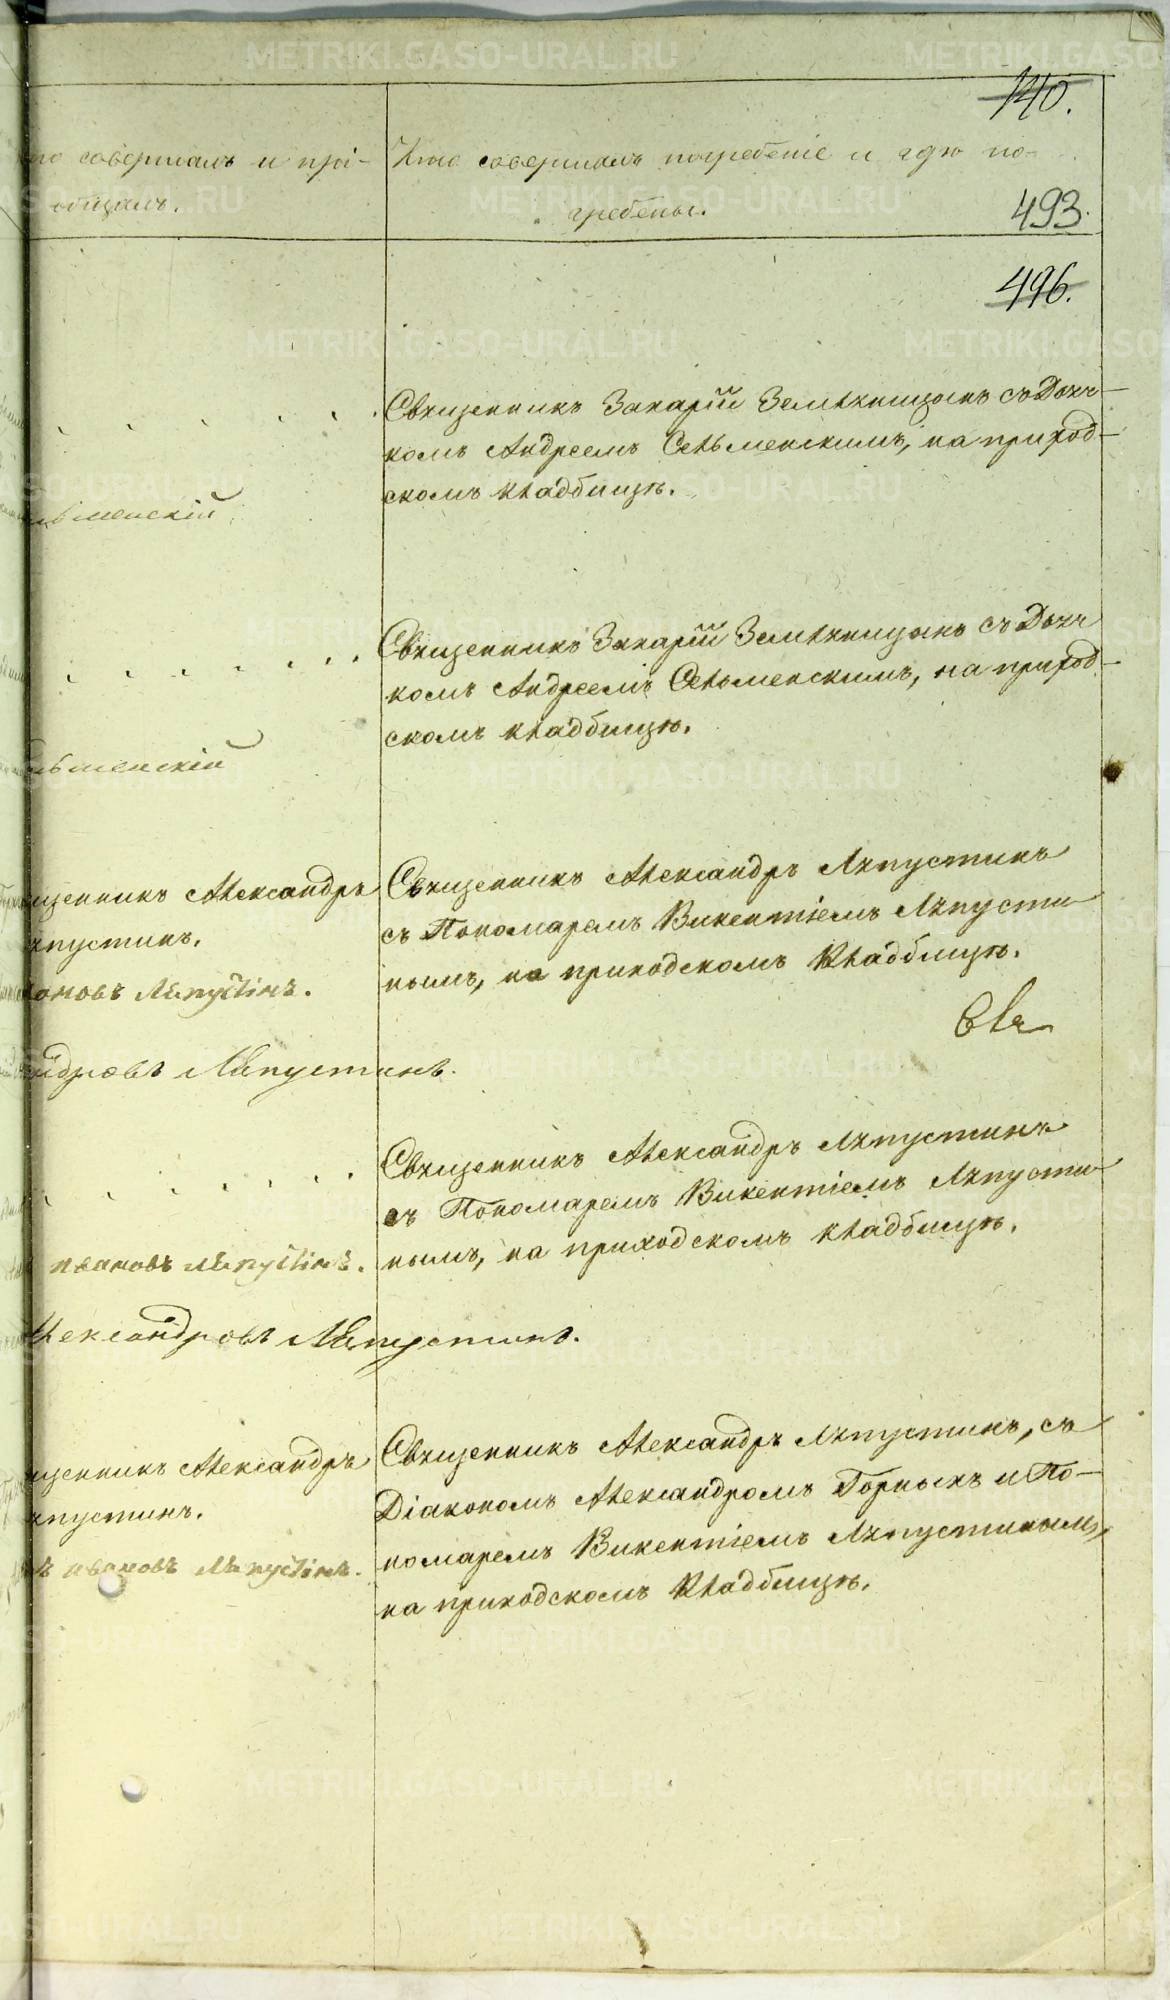 140.
совершалъ и прі-
общалъ.
Кто совершалъ погребеніе и гдѣ по-
гребены.
493.
496.
Священникъ Захарій Земляницынъ съ Дьяч-
комъ Андреемъ Сельменскимъ, на приход-
скомъ кладбищѣ.
льменскій
Священникъ Захарій Земляницынъ съ Дьяч
комъ Андреемъ Сельменскимъ, на приход-
скомъ кладбищѣ.
льменскій
щенникъ Александръ
япустинъ.
ановъ Ляпустінъ.
ндровъ Ляпустинъ.
Священникъ Александръ Ляпустинъ
съ Пономаремъ Викентіемъ Ляпусти
нымъ, на приходскомъ кладбищѣ.
Священникъ Александръ Ляпустинъ
съ Пономаремъ Викентіемъ Ляпусти-
нымъ, на приходскомъ кладбищѣ.
ивановъ Ляпустінъ.
Александровъ Ляпустинъ.
щенникъ Александръ
япустинъ.
ивановъ Ляпустінъ.
Священникъ Александръ Ляпустинъ, съ
Діакономъ Александромъ Горныхъ и По-
номаремъ Викентіемъ Ляпустинымъ,
на приходскомъ кладбищѣ.
METRIKI.GASO-URAL.RU